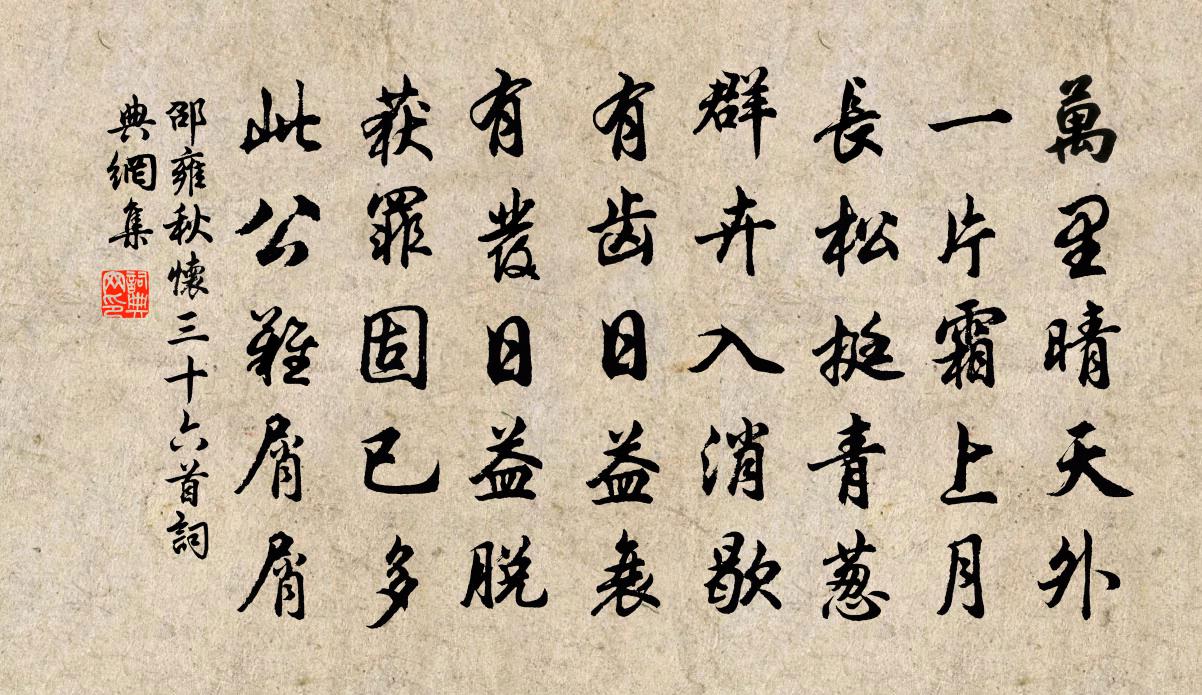 萬里晴天外
一片霜上月
長松挺青葱
群卉入消歇
有齿日益衰
有发日益脱
获罪固已多
此公難屑屑
邵雍秋懷三十六首詞
典網集
詞典
网印